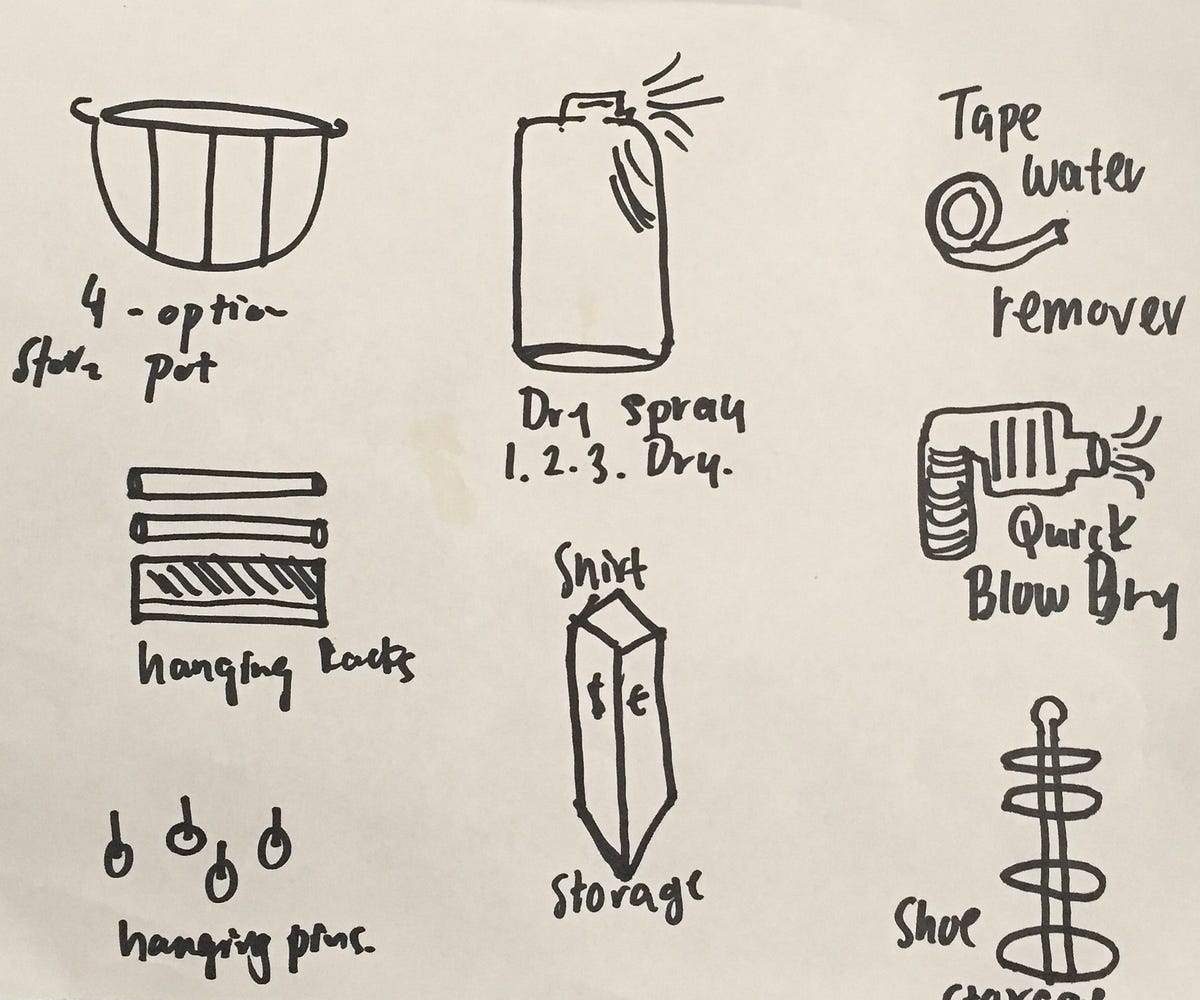 4 - option
pot
Dry spray
1. 2. 3. Dry.
Tape
water
remover
hanging racks
Quick
Blow Dry
Shirt
$ €
Storage
hanging pins.
Shoe
storage